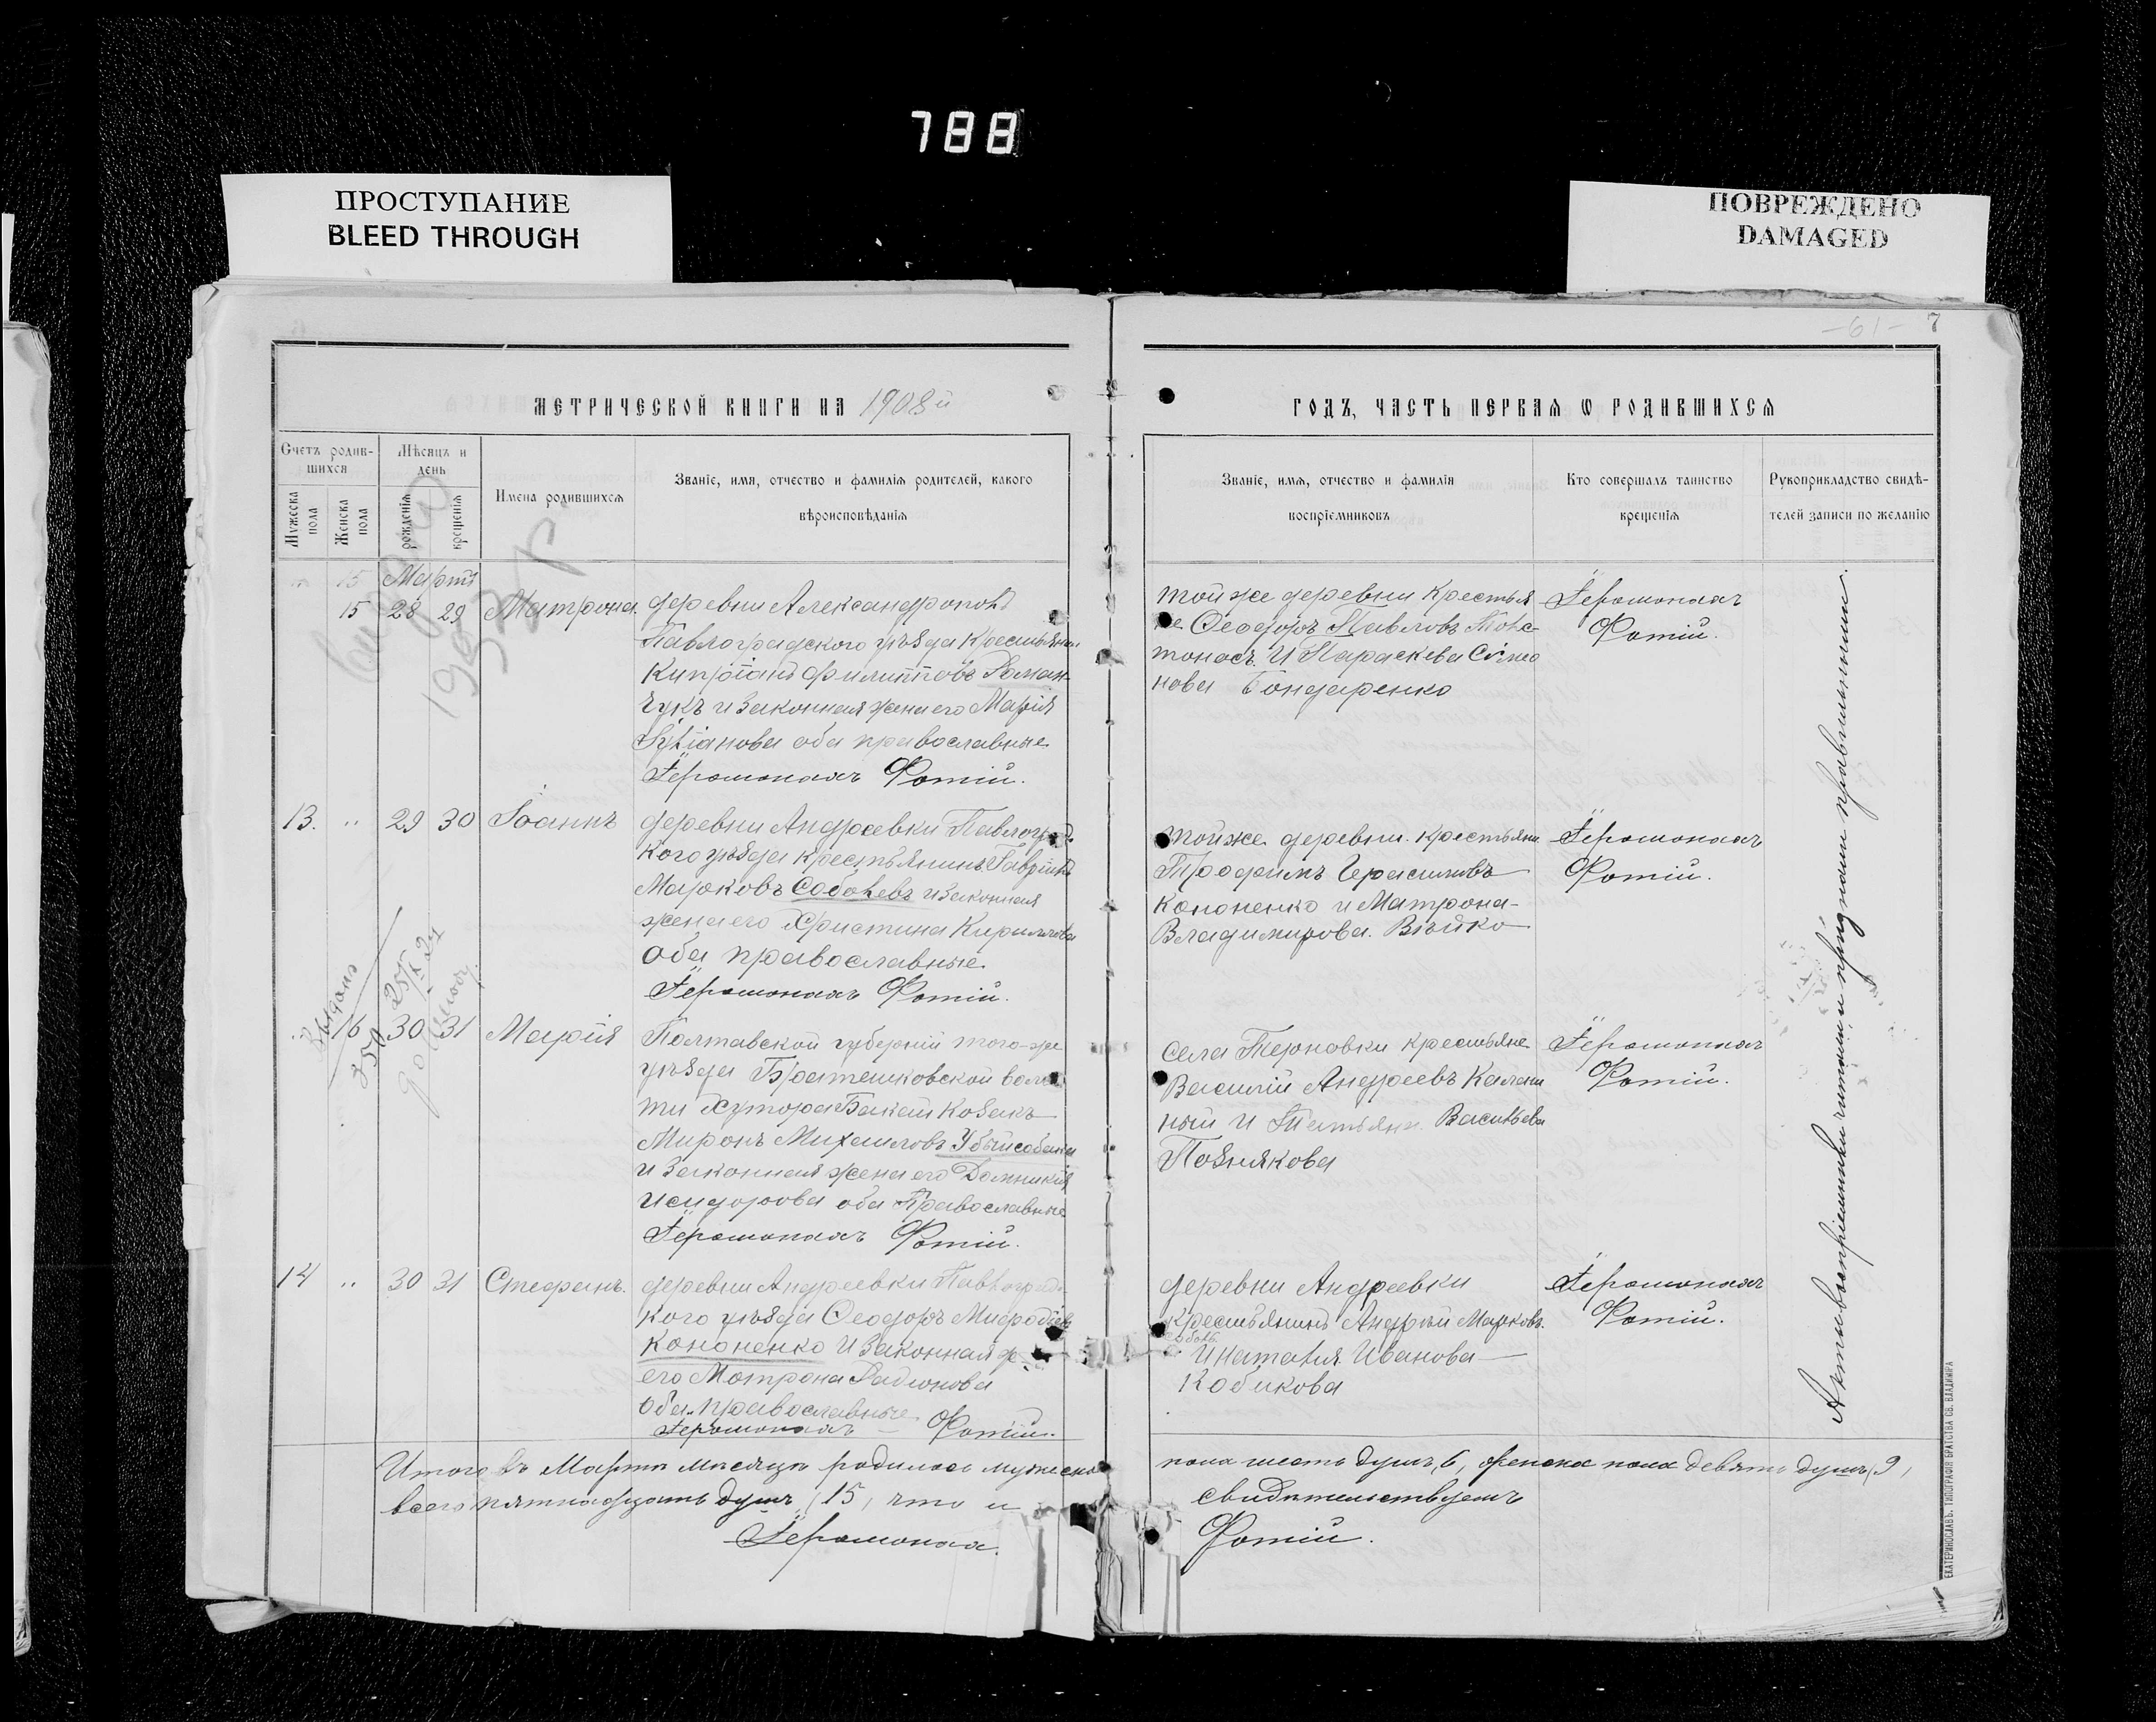 788
ПРОСТУПАНИЕ
BLEED THROUGH
ПОВРЕЖДЕНО
DAMAGED
-61- 7
МЕТРИЧЕСКОЙ КНИГИ НА 1908й
ГОДЪ, ЧАСТЬ ПЕРВАЯ Ѡ РОДИВШИХСѦ
Счетъ родив-
шихся
Мужеска пола
Женска пола
Мѣсяцъ и
день
рожденія
крещенія
Имена родившихся
Званіе, имя, отчество и фамилія родителей, какого
вѣроисповѣданія
Званіе, имя, отчество и фамилія
воспріемниковъ
Кто совершалъ таинство
крещенія
Рукоприкладство свидѣ-
телей записи по желанію
15 Мартъ
15 28 29 Матрона
деревни Александрополь
Павлоградского уѣзда Крестьянин
Купріанъ Филипповъ Роман-
чукъ и законная жена его Марія
оба православные
Іеромонахъ Фотій.
тойже деревни Крестья
не Феодоръ Павловъ Товс-
тоносъ и Параскева Симео
нова Бондаренко
Іеромонахъ
Фотій.
13. „ 29 30 Іоаннъ
деревни Андреевки Павлоград
кого уѣзда крестьянинъ Гавріилъ
Марковъ Соболевъ и законная
жена его Христина Кириллова
оба православные
Іеромонахъ Фотій.
тойже деревни крестьяни
Трофимъ Герасимовъ
Кононенко и Матрона
Владимирова
Іеромонахъ
Фотій.
„ 16 30 31 Марія
Полтавской губерніи того-же
уѣзда Братешковской волос
ти Хутора Бакай Козакъ
Миронъ Михаиловъ Убийсобака
и законная жена его Домникія
Исидорова оба Православные
Іеромонахъ Фотій.
села Терновки крестьяне
Василій Андреевъ Калаш
ный и Татьяна Васильева
Познякова
Іеромонахъ
Фотій.
14 „ 30 31 Стефанъ.
деревни Андреевки Павлоград
кого уѣзда Феодоръ Мефодіев
Кононенко и законная ж
его Мотрона Радионова
оба православные
Іеромонахъ Фотій.
деревни Андреевки
крестьянинъ Андрей Марковъ
И Наталія Иванова
Кобикова
Іеромонахъ
Фотій.
Итого въ Мартѣ мѣсяцѣ родилось мужеска
пола шесть душъ, 6, женска пола девять душъ, 9,
всего пятнадцать душъ, 15, что и
свидѣтельствуемъ
Іеромонах
Фотій.
Акты воспріемники читали и признали правильными.
ЕКАТЕРИНОСЛАВЪ. ТИПОГРАФІЯ БРАТСТВА СВ. ВЛАДИМІРА